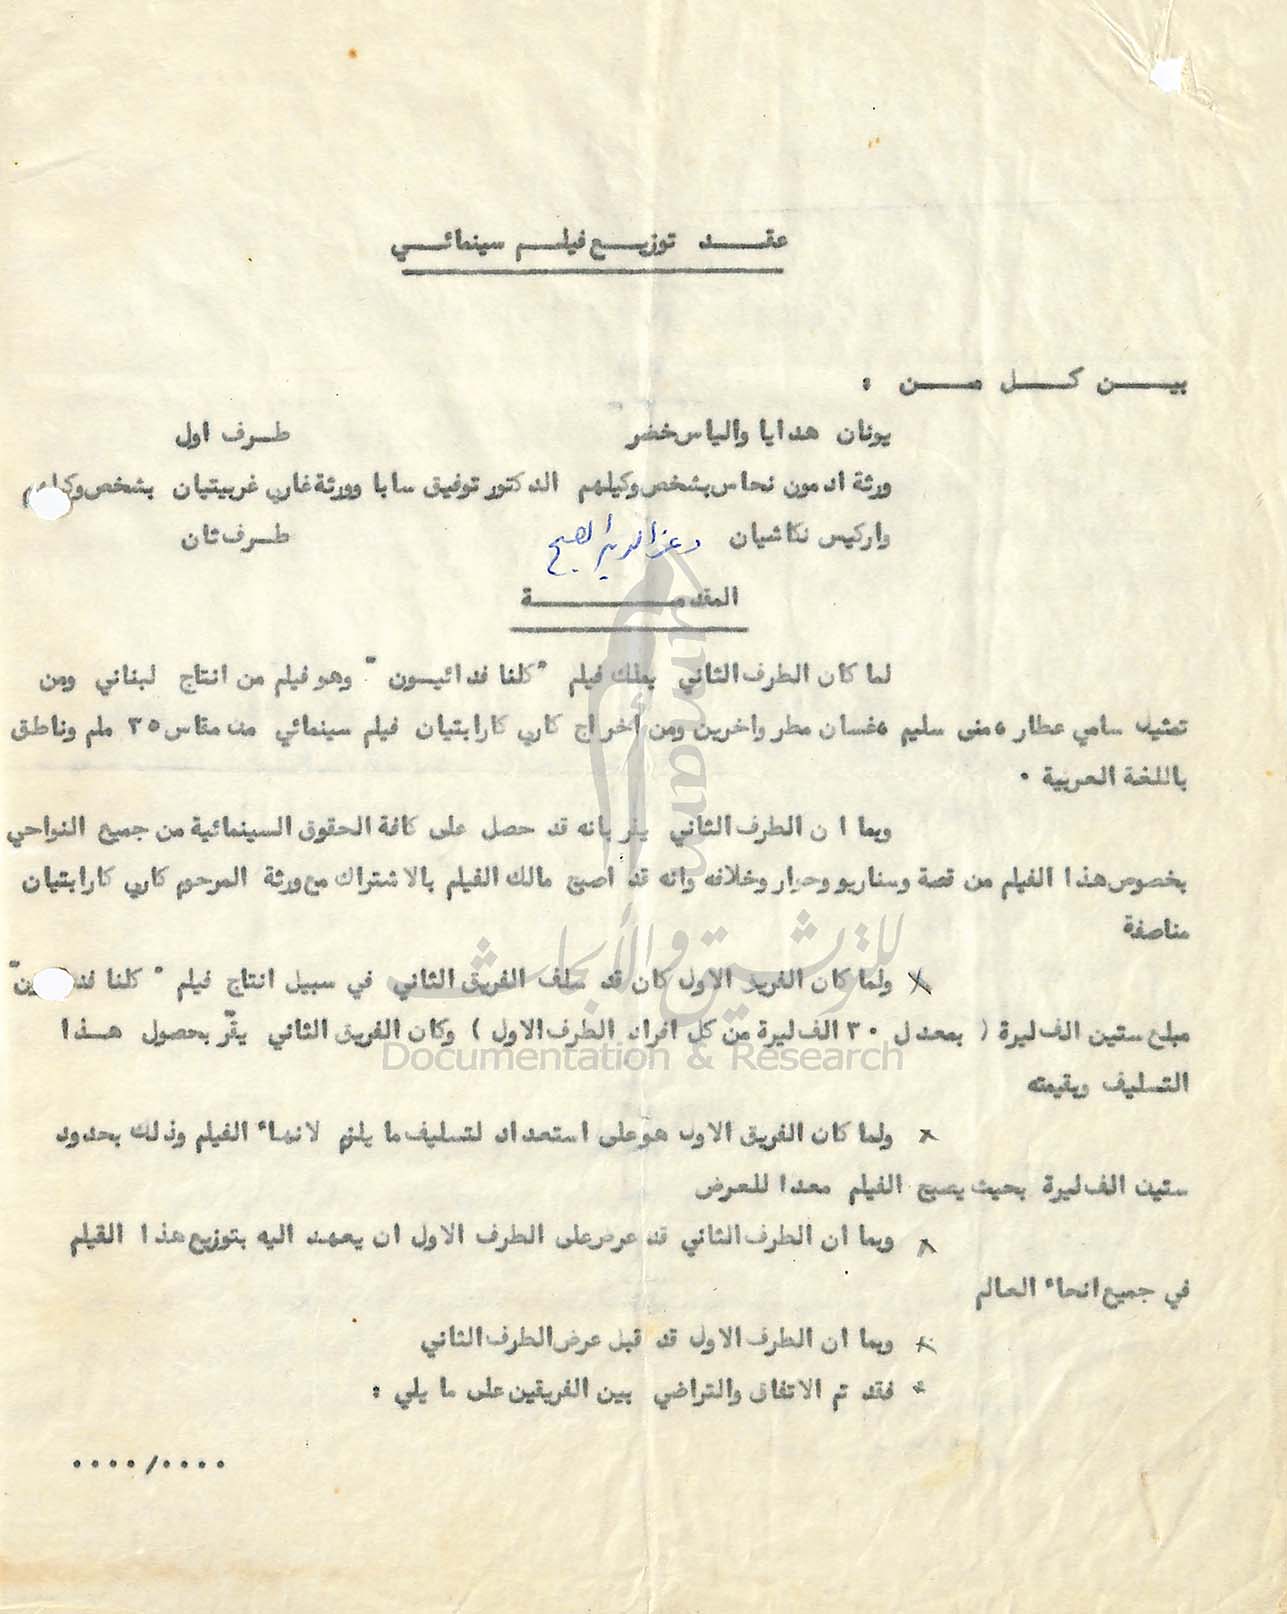 عقد توزيع فيلم سينمائي
بين كل من :
يونان هدايا والياس خضر طرف اول
ورثة ادمون نحاس بشخص وكيلهم الدكتور توفيق سابا وورثة غاري غربيتيان بشخص وكيلهم
واركيس نكاشيان طرف ثان
المقدمة
لما كان الطرف الثاني يملك فيلم "كلنا فدائيون" وهو فيلم من انتاج لبناني ومن
تمثيل سامي عطار ، منى سليم ، غسان مطر واخرين ومن أخراج كاري كارابتيان فيلم سينمائي من مقاس ٣٥ ملم وناطق
باللغة العربية .
وبما ان الطرف الثاني يقر بانه قد حصل على كافة الحقوق السينمائية من جميع النواحي
بخصوص هذا الفيلم من قصة وسناريو وحوار وخلافه وانه قد اصبح مالك الفيلم بالاشتراك مع ورثة المرحوم كاري كارابتيان
مناصفة
× ولما كان الفريق الاول كان قد سلف الفريق الثاني في سبيل انتاج فيلم "كلنا فدائيون"
مبلغ ستين الف ليرة ( بمعدل ٣٠ الف ليرة من كل افراد الطرف الاول ) وكان الفريق الثاني يقرّ بحصول هذا
التسليف وبقيمته
× ولما كان الفريق الاول هو على استعداد لتسليف ما يلزم لانهاء الفيلم وذلك بحدود
ستين الف ليرة بحيث يصبح الفيلم معدا للعرض
× وبما ان الطرف الثاني قد عرض على الطرف الاول ان يعهد اليه بتوزيع هذا الفيلم
في جميع انحاء العالم
× وبما ان الطرف الاول قد قبل عرض الطرف الثاني
* فقد تم الاتفاق والتراضي بين الفريقين على ما يلي :
..../....
Umam
للتوثيق والأبحاث
Documentation & Research